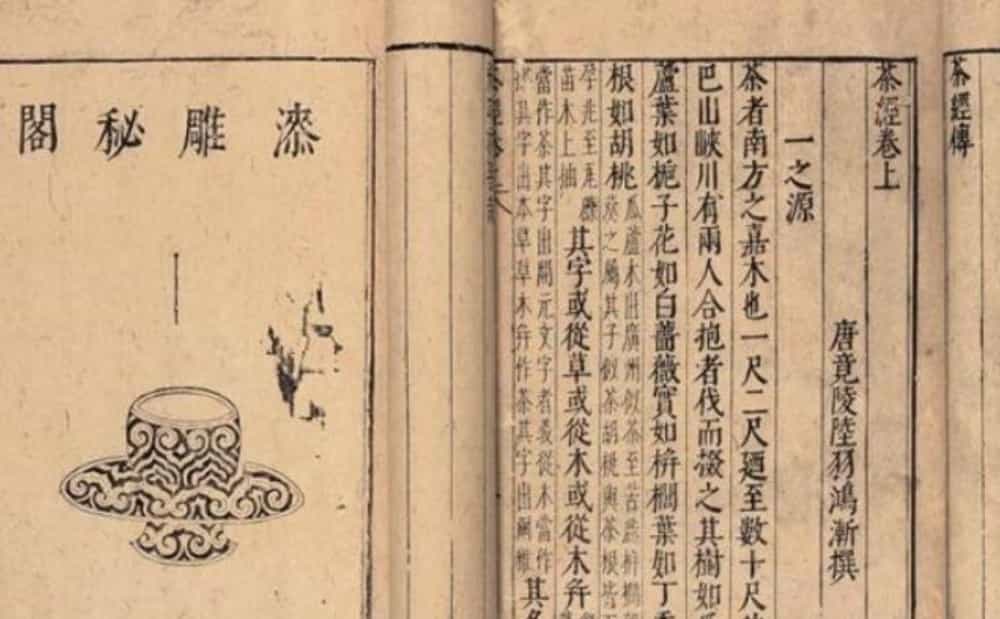 茶經傳
茶經卷上
唐竟陵陸羽鴻漸撰
一之源
茶者南方之嘉木也一尺二尺廼至數十尺
巴山峽川有兩人合抱者伐而掇之其樹如
蘆葉如梔子花如白薔薇實如栟櫚葉如丁
根如胡桃
瓜蘆木出廣州似茶至苦澀栟櫚
葵之屬其子似茶胡桃與茶根皆
孕兆至瓦礫
苗木上抽
其字或從草或從木或從木并
當作茶其字出開元文字者義從木當作
其字出本草草木并作茶其字出爾雅
其名
漆雕秘閣